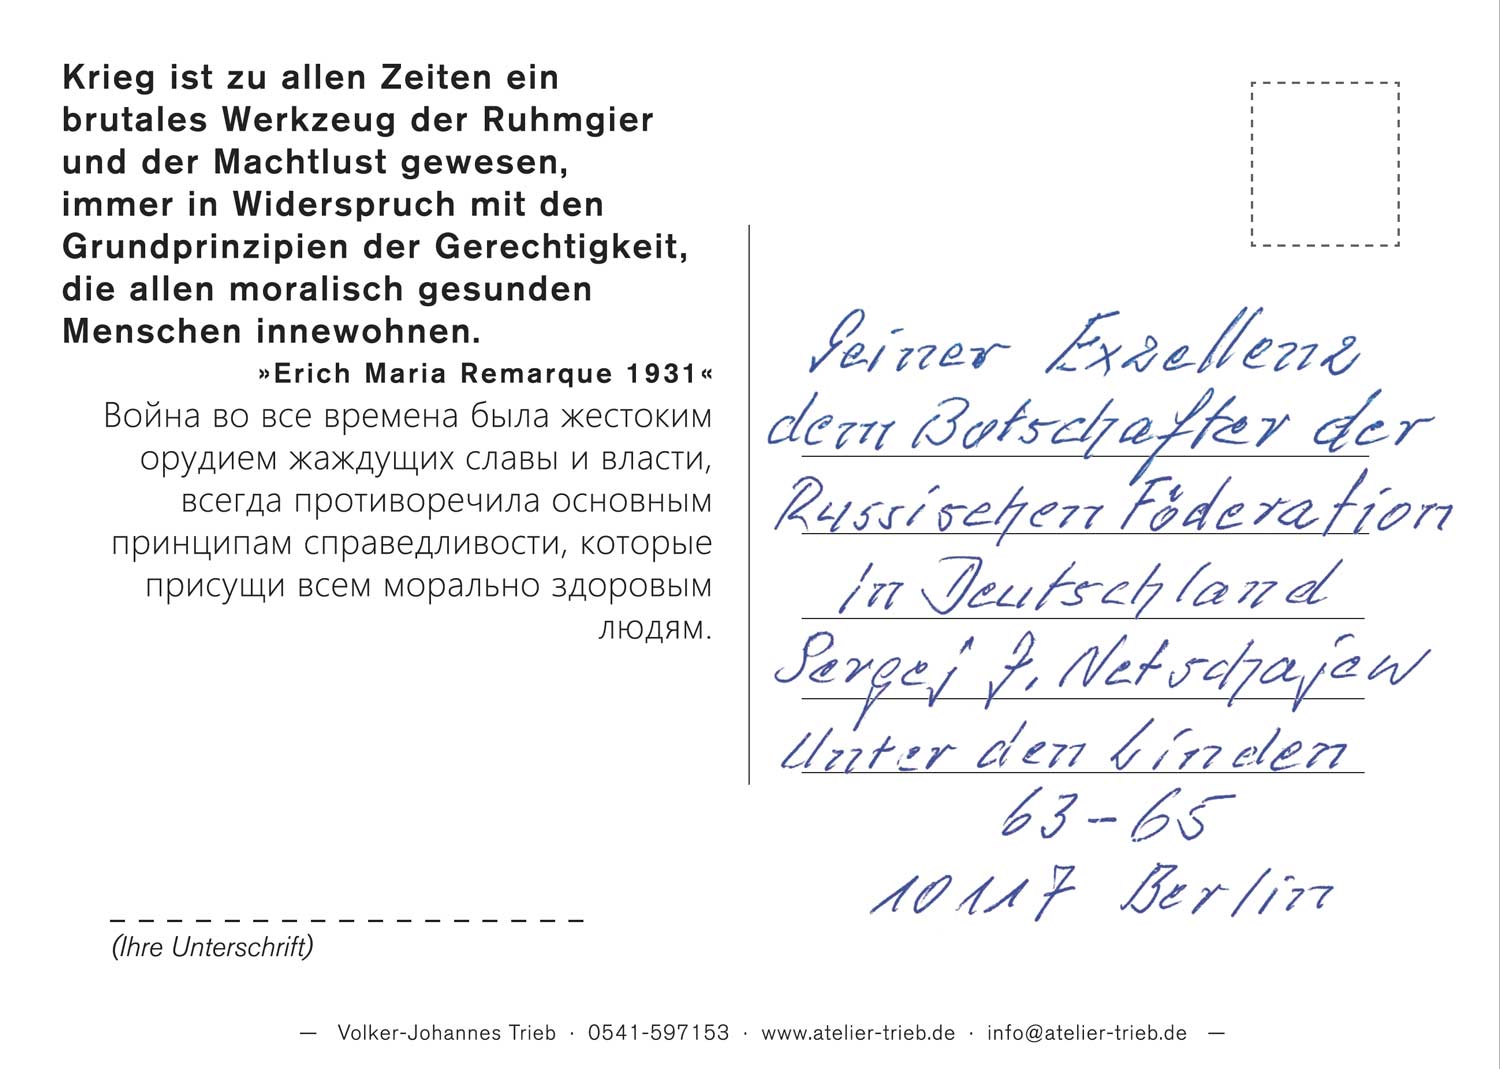 Krieg ist zu allen Zeiten ein
brutales Werkzeug der Ruhmgier
und der Machtlust gewesen,
immer in Widerspruch mit den
Grundprinzipien der Gerechtigkeit,
die allen moralisch gesunden
Menschen innewohnen.
»Erich Maria Remarque 1931«
Война во все времена была жестоким
орудием жаждущих славы и власти,
всегда противоречила основным
принципам справедливости, которые
присущи всем морально здоровым
людям.
(Ihre Unterschrift)
Seiner Exzellenz
dem Botschafter der
Russischen Föderation
in Deutschland
Sergej J. Netschajew
Unter den Linden
63-65
10117 Berlin
— Volker-Johannes Trieb · 0541-597153 · www.atelier-trieb.de · info@atelier-trieb.de —